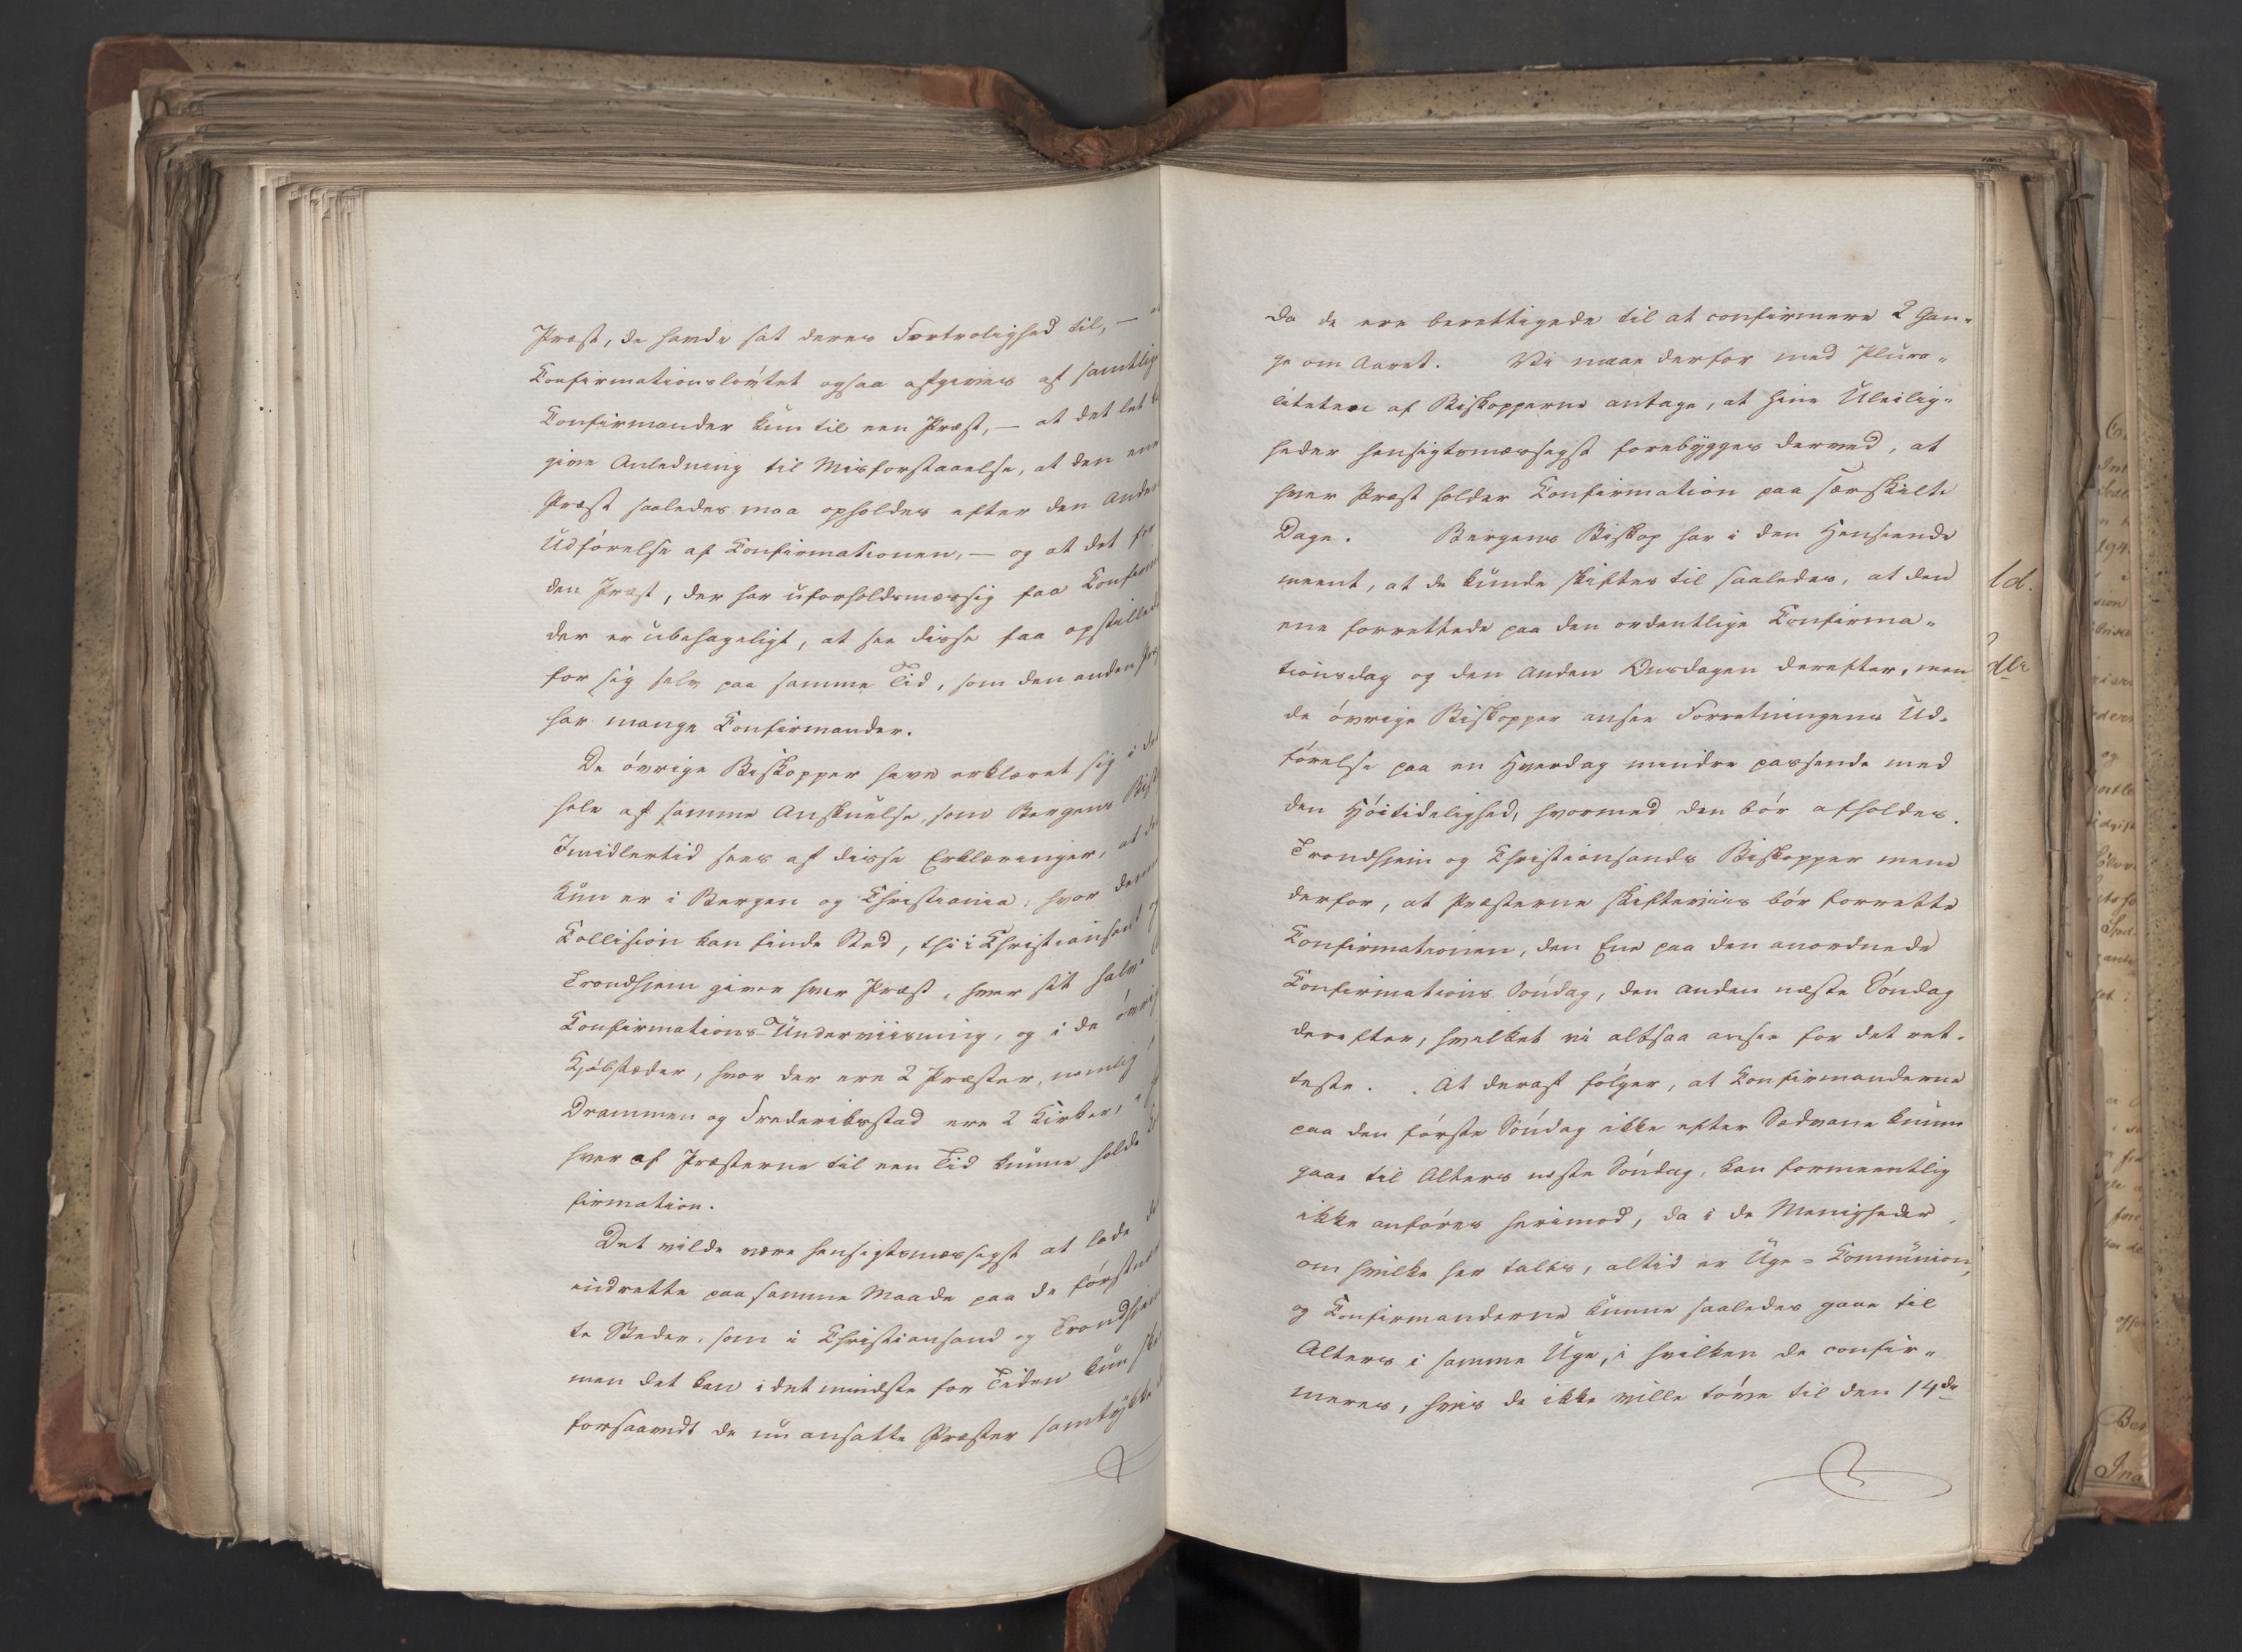 Præst, de havde sat deres Fortrolighed til, —
Confirmationsløvtet ogsaa afgives af samtlige
Confirmander kun til een Præst, — at det let
give Anledning til Misforstaaelse, at den ene
Præst saaledes maa opholdes efter den Anden
Udførelse af Confirmationen, — og at det for
den Præst, der har uforholdsmæssig faa Confirm
der er ubehageligt, at see disse faa opstillede
for sig selv paa samme Tid, som den anden
har mange Confirmander.
De øvrige Biskopper have erklæret sig i det
hele af samme Anskuelse, som Bergens
Imidlertid sees af disse Erklæringer, at det
kun er i Bergen og Christiania, hvor denne
Collision kan finde Sted, thi i Christiansand
Trondhjem giver hver Præst, hver sit halve
Confirmations-Underviisning, og i de øvrige
Kjøbstæder, hvor der ere 2 Præster, nemlig
Drammen og Frederiksstad ere 2 Kirker,
hver af Præsterne til een Tid kunne holde
firmation.
Det vilde være hensigtsmæssigst at lade
indrette paa samme Maade paa de først
te Steder, som i Christiansand og Trondhjem
men det kan i det mindste for Tiden kun
forsaavidt de nu ansatte Præster samtykke
Da de ere berettigede til at confirmere 2 Gan-
ge om Aaret. Vi maae derfor med Plura-
liteten af Biskopperne antage, at hine Uleilig-
heder hensigtsmæssigst forebygges derved, at
hver Præst holder Confirmation paa særskilte
Dage. Bergens Biskop har i den Henseende
meent, at de kunde skiftes til saaledes, at den
ene forrettede paa den ordentlige Confirma-
tionsdag og den Anden Onsdagen derefter, men
de øvrige Biskopper ansee Forretningens Ud-
førelse paa en Hverdag mindre passende med
den Høitidelighed, hvormed den bør afholdes.
Trondhjem og Christiansands Biskopper mene
derfor, at Præsterne skifteviis bør forrette
Confirmationen, den Ene paa den anordnede
Confirmations Søndag, den anden næste Søndag
derefter, hvilket vi altsaa ansee for det ret-
teste. At deraf følger, at Confirmanderne
paa den første Søndag ikke efter Sædvane kunne
gaae til Alters næste Søndag, kan formeentlig
ikke anføres herimod, da i de Menigheder,
om hvilke her tales, altid er Uge-Communion,
og Confirmanderne kunne saaledes gaae til
Alters i samme Uge, i hvilken de confir-
meres, hvis de ikke ville tøve til den 14de